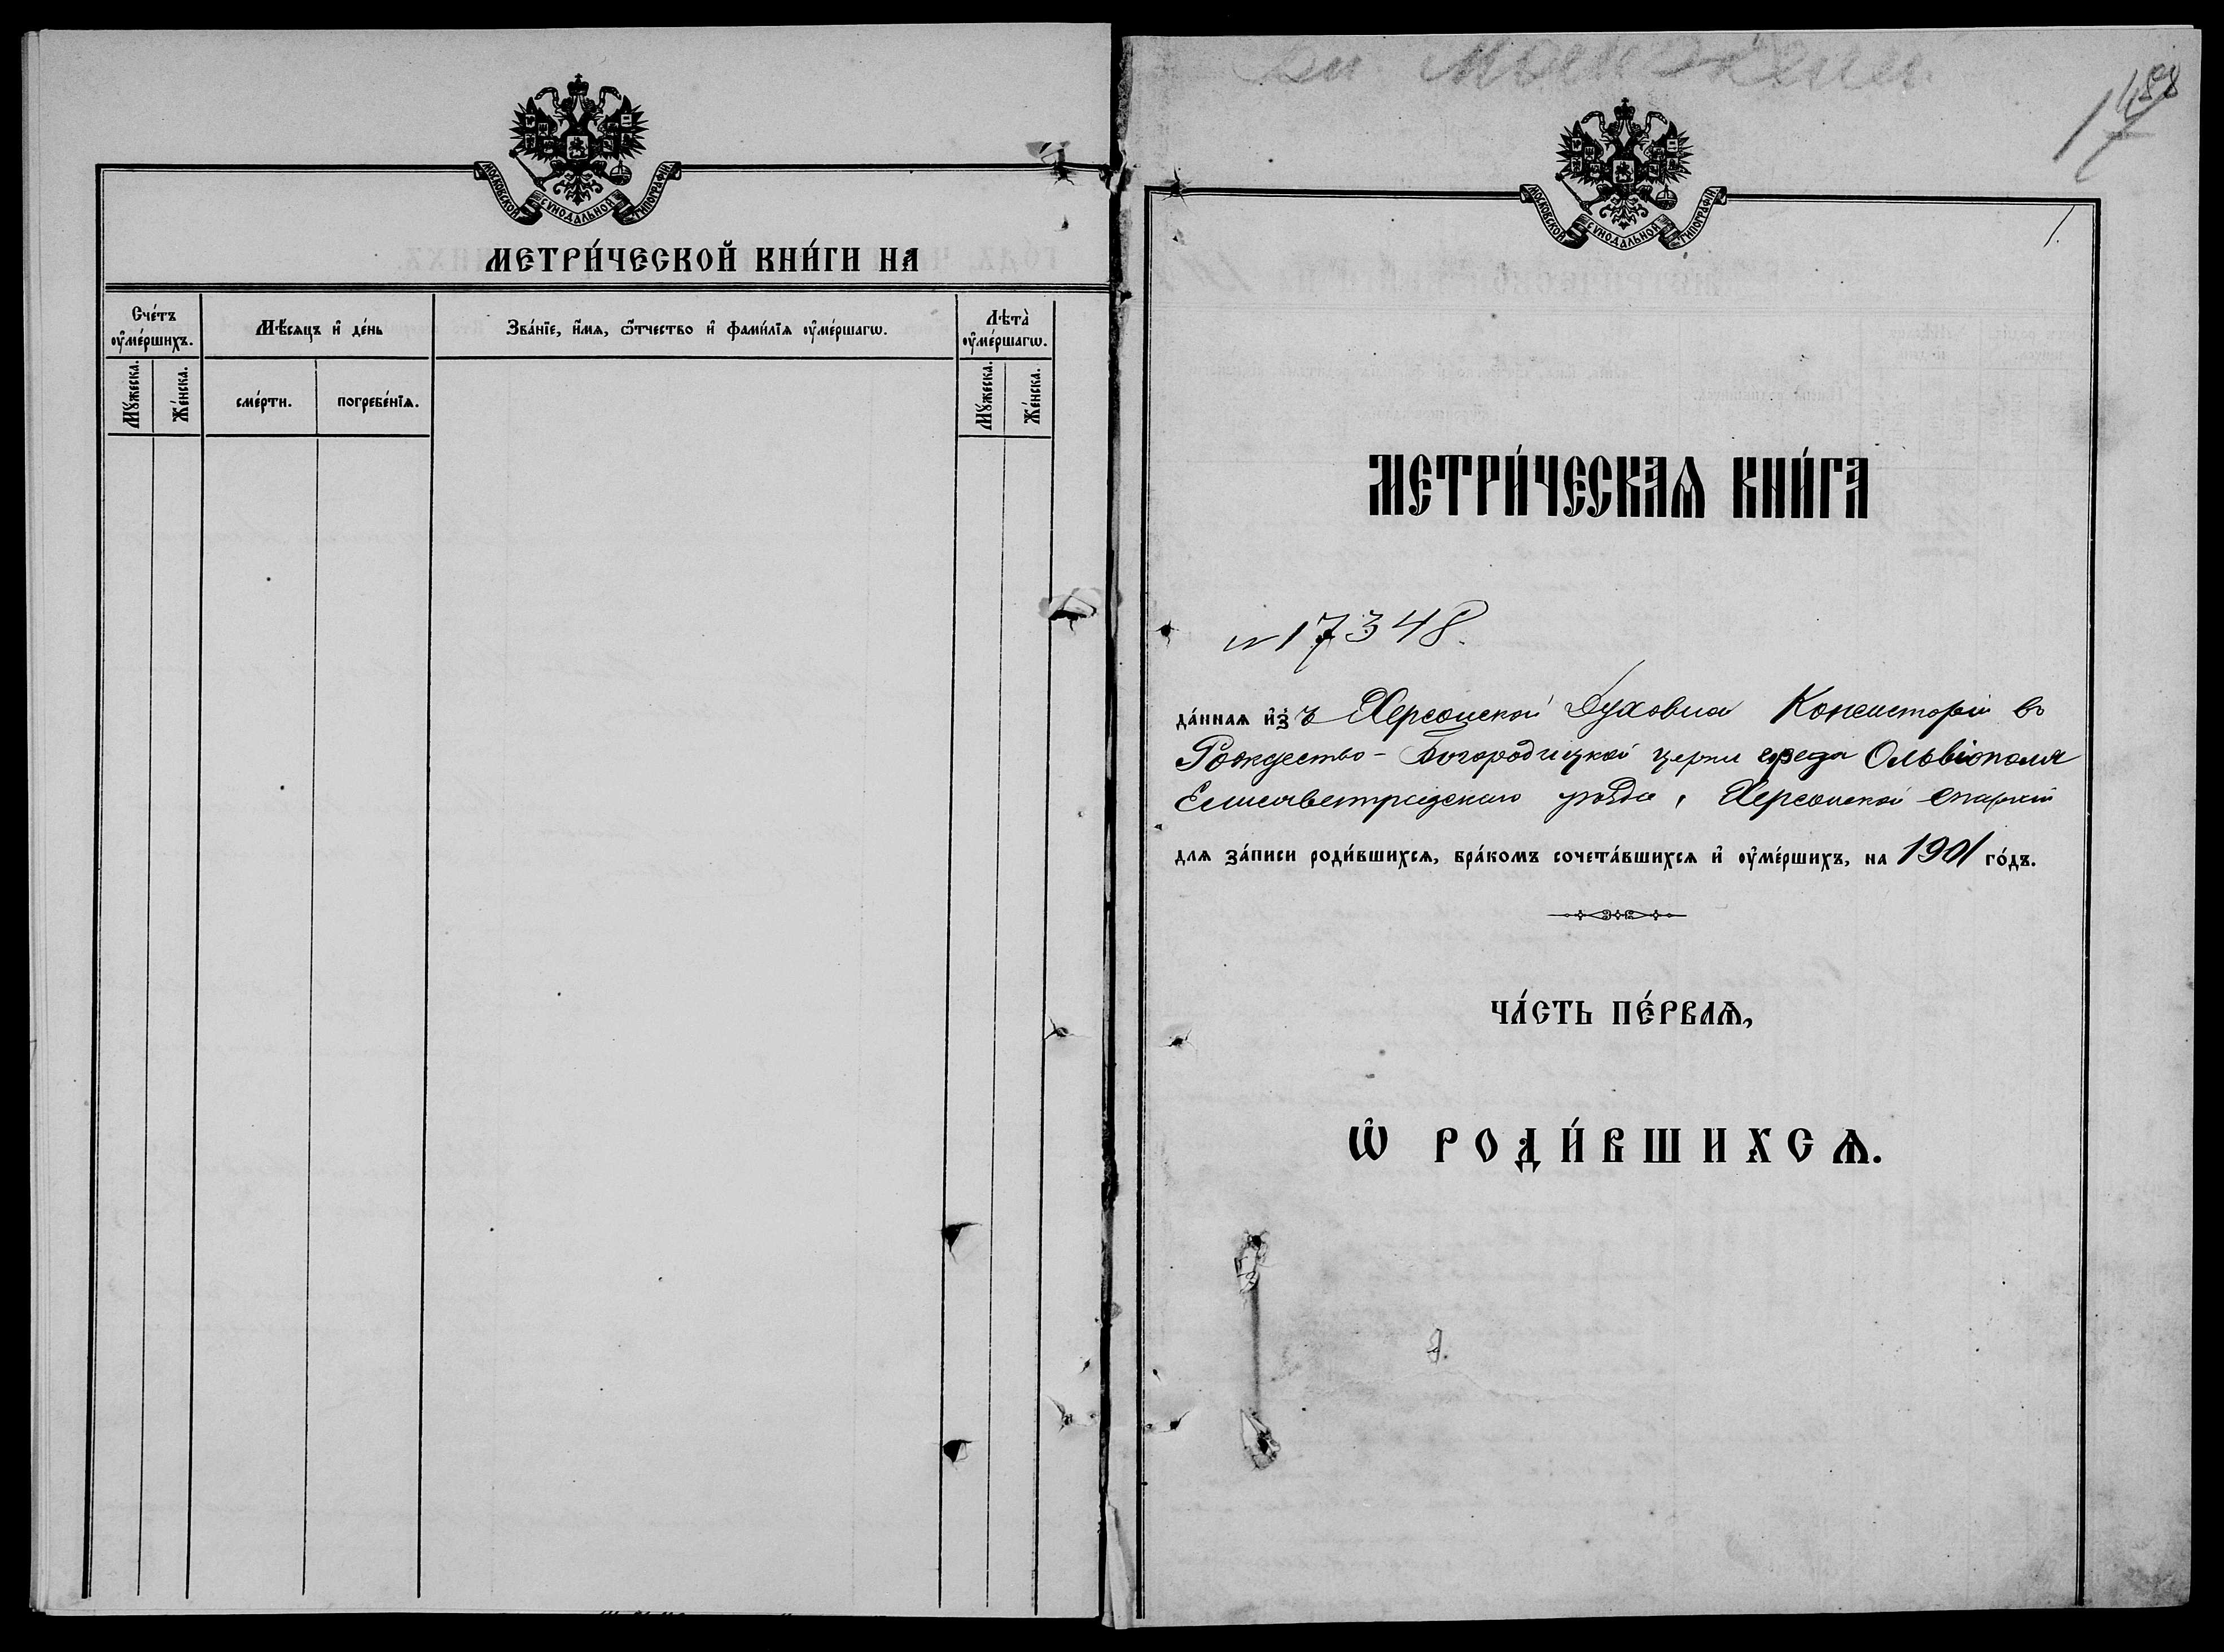 МОСКОВСКОЙ СѴНОДАЛЬНОЙ ТИПОГРАФІИ
МЕТРИ́ЧЕСКОЙ КНИ́ГИ НА
Сче́тъ
ᲂу҆ме́ршихъ.
Мѣ́сяцъ и҆ де́нь
Зва́нїе, и҆́мѧ, ѻ҆́тчество и҆ фами́лїѧ ᲂу҆ме́ршагѡ.
Лѣта̀
ᲂу҆ме́ршагѡ.
Мꙋ́жеска.
Же́нска.
сме́рти.
погребе́нїѧ.
Мꙋ́жеска.
Же́нска.
МОСКОВСКОЙ СѴНОДАЛЬНОЙ ТИПОГРАФІИ
1.
МЕТРИ́ЧЕСКАѦ КНИ́ГА
N 17348.
да́ннаѧ и҆з̾ ъ Херсонской Духовной Консисторіи въ
Рождество-Богородицкой церкви города Ольвіополя
Елисаветградскаго уѣзда, Херсонской епархіи
длѧ за́писи роди́вшихсѧ, бра́комъ сочета́вшихсѧ и҆ ᲂу҆ме́ршихъ, на 1901 го́дъ.
ЧА́СТЬ ПЕ́РВАѦ,
Ѽ РОДИ́ВШИХСѦ.